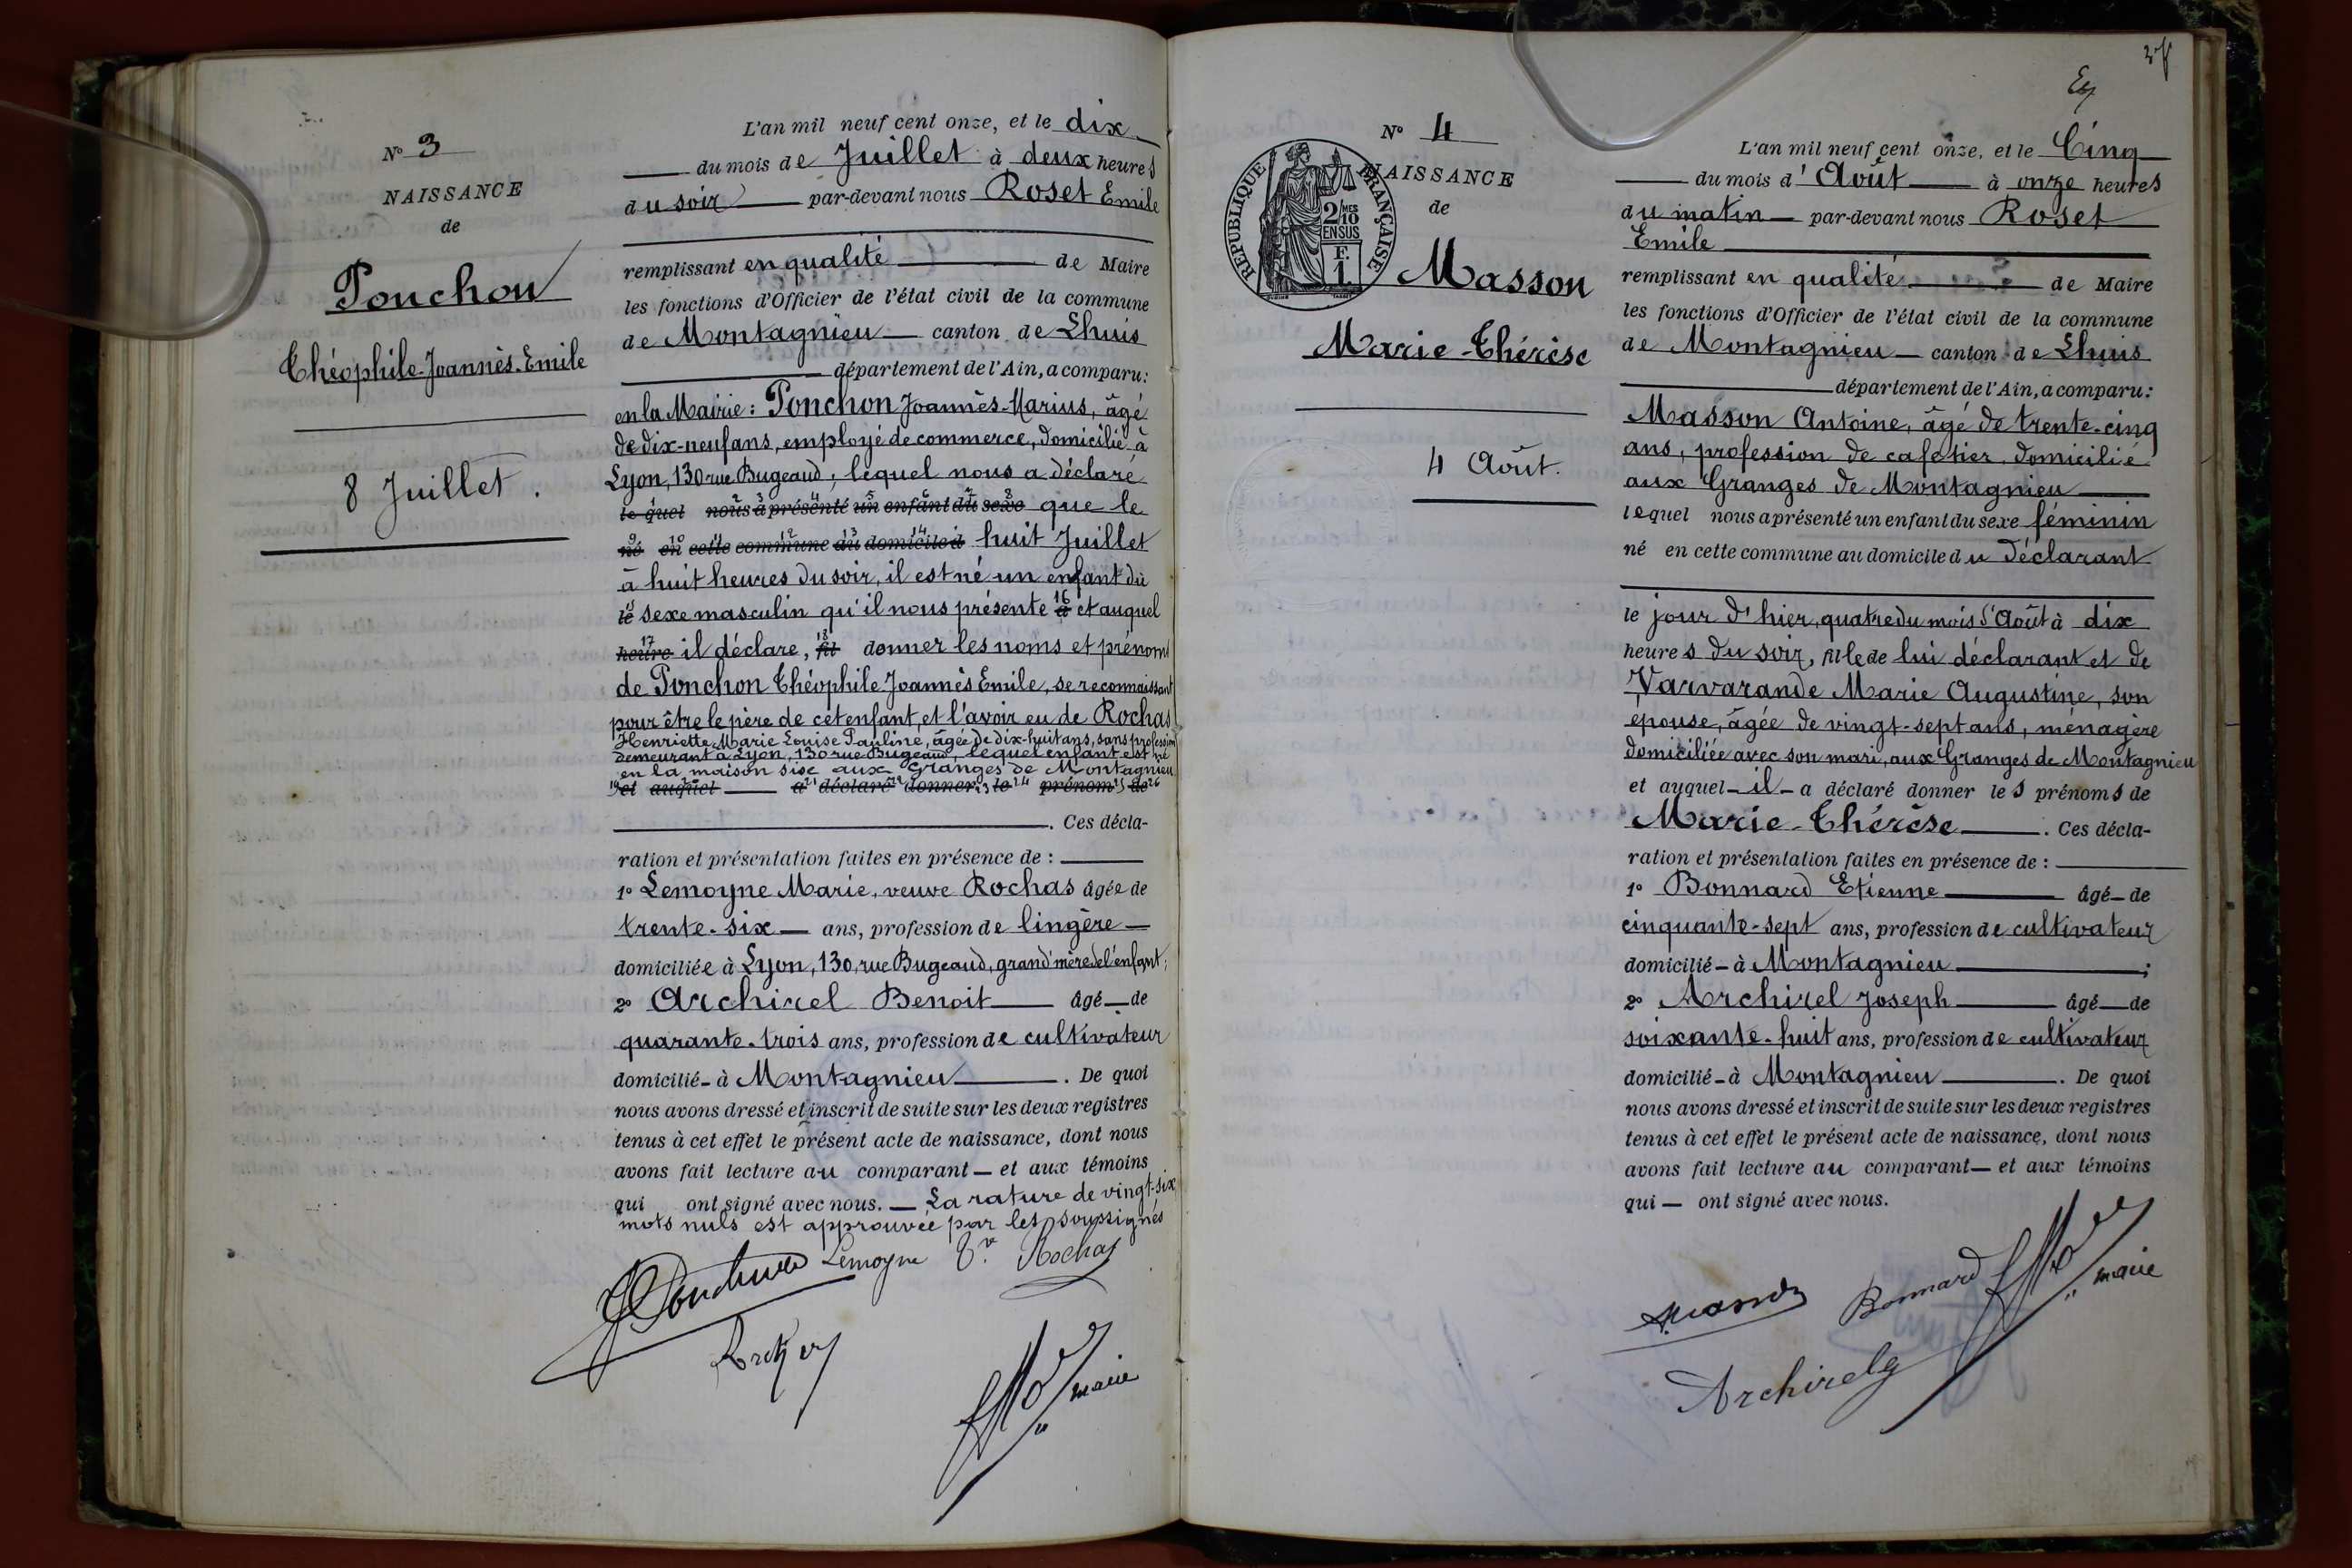 N° 3
NAISSANCE
de
Ponchon
Théophile-Joannès-Emile
8 Juillet.
L'an mil neuf cent onze, et le dix
du mois de Juillet à deux heures
du soir par-devant nous Roset Emile
remplissant en qualité de Maire
les fonctions d'Officier de l'état civil de la commune
de Montagnieu canton de Lhuis
département de l'Ain, a comparu:
en la Mairie: Ponchon Joannès-Marius, âgé
de dix-neuf ans, employé de commerce, domicilié à
Lyon, 130 rue Bugeaud; lequel nous a déclaré
lequel nous a présenté un enfant du sexe que le
né en cette commune au domicile d huit Juillet
à huit heures du soir, il est né un enfant du
le sexe masculin qu'il nous présente à et auquel
heure il déclare, fil donner les noms et prénoms
de Ponchon Théophile Joannès Emile, se reconnaissant
pour être le père de cet enfant, et l'avoir eu de Rochas
Henriette Marie Louise Pauline, âgée de dix-huit ans, sans profession
demeurant à Lyon, 130 rue Bugeaud, lequel enfant est né
en la maison sise aux Granges de Montagnieu
et auquel a déclaré donner le prénom de
Ces décla-
ration et présentation faites en présence de :
1° Lemoyne Marie, veuve Rochas âgée de
trente-six ans, profession de lingère
domiciliée à Lyon, 130, rue Bugeaud, grand'mère de l'enfant;
2° Archirel Benoit âgé de
quarante-trois ans, profession de cultivateur
domicilié à Montagnieu. De quoi
nous avons dressé et inscrit de suite sur les deux registres
tenus à cet effet le présent acte de naissance, dont nous
avons fait lecture au comparant et aux témoins
qui ont signé avec nous. La rature de vingt-six
mots nuls est approuvée par les soussignés
Lemoyne Vve Rochas
maire
N° 4
NAISSANCE
de
RÉPUBLIQUE FRANÇAISE
2/10 MES
EN SUS
F.
1.
Masson
Marie-Thérèse
4 Août.
L'an mil neuf cent onze, et le Cinq
du mois d'Août à onze heures
du matin par-devant nous Roset
Emile
remplissant en qualité de Maire
les fonctions d'Officier de l'état civil de la commune
de Montagnieu canton de Lhuis
département de l'Ain, a comparu:
Masson Antoine, âgé de trente-cinq
ans, profession de cafetier, domicilié
aux Granges de Montagnieu
lequel nous a présenté un enfant du sexe féminin
né en cette commune au domicile du déclarant
le jour d'hier, quatre du mois d'Août à dix
heures du soir, fille de lui déclarant et de
Varvarande Marie Augustine, son
épouse, âgée de vingt-sept ans, ménagère
domiciliée avec son mari, aux Granges de Montagnieu
et auquel il a déclaré donner les prénoms de
Marie-Thérèse. Ces décla-
ration et présentation faites en présence de :
1° Bonnard Etienne âgé de
cinquante-sept ans, profession de cultivateur
domicilié à Montagnieu;
2° Archirel Joseph âgé de
soixante-huit ans, profession de cultivateur
domicilié à Montagnieu. De quoi
nous avons dressé et inscrit de suite sur les deux registres
tenus à cet effet le présent acte de naissance, dont nous
avons fait lecture au comparant et aux témoins
qui ont signé avec nous.
Masson Bonnard maire
Archirel